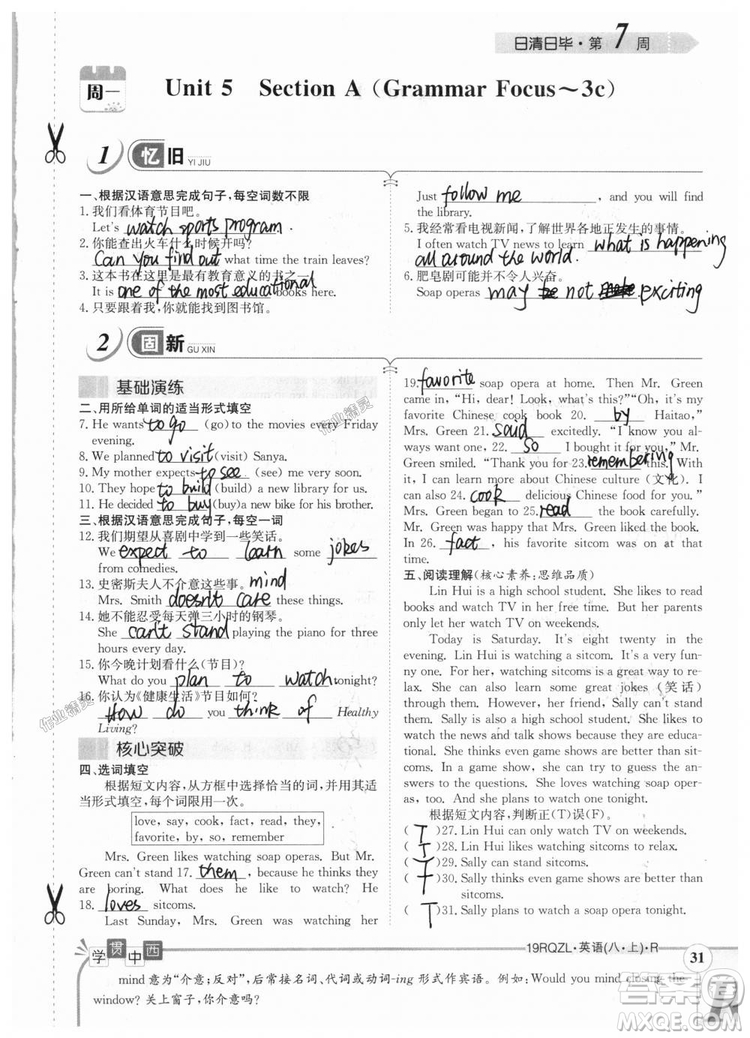 日清日毕·第7周
周一
Unit 5 Section A (Grammar Focus～3c)
1 忆旧 YI JIU
一、根据汉语意思完成句子,每空词数不限
1. 我们看体育节目吧。
Let's watch sports program.
2. 你能查出火车什么时候开吗?
Can you find out what time the train leaves?
3. 这本书在这里是最有教育意义的书之一。
It is one of the most educational books here.
4. 只要跟着我,你就会找到图书馆。
Just follow me, and you will find
the library.
5. 我经常看电视新闻,了解世界各地正发生的事情。
I often watch TV news to learn what is happening
all around the world.
6. 肥皂剧可能并不令人兴奋。
Soap operas may be not exciting
2 固新 GU XIN
基础演练
二、用所给单词的适当形式填空
7. He wants to go (go) to the movies every Friday
evening.
8. We planned to visit (visit) Sanya.
9. My mother expects to see (see) me.
10. They hope to build (build) a new library for us.
11. He decided to buy (buy) a new bike for his brother.
三、根据汉语意思完成句子,每空一词
12. 我们期望从喜剧中学到一些笑话。
We expect to learn some jokes
from comedies.
13. 史密斯夫人不介意这些事。 mind
Mrs. Smith doesn't care these things.
14. 她不能忍受每天弹三小时的钢琴。
She can't stand playing the piano for three
hours every day.
15. 你今晚计划看什么(节目)?
What do you plan to watch tonight?
16. 你认为《健康生活》节目如何?
How do you think of Healthy
Living?
核心突破
四、选词填空
根据短文内容,从方框中选择恰当的词,并用其适
当形式填空,每个词限用一次。
love, say, cook, fact, read, they,
favorite, by, so, remember
Mrs. Green likes watching soap operas. But Mr.
Green can't stand 17. them, because he thinks they
are boring. What does he like to watch? He
18. loves sitcoms.
Last Sunday, Mrs. Green was watching her
19. favorite soap opera at home. Then Mr. Green
came in, "Hi, dear! Look, what's this?" "Oh, it's my
favorite Chinese cook book 20. by Haitao,"
Mrs. Green 21. said excitedly. "I know you al-
ways want one. 22. so I bought it for you," Mr.
Green smiled. "Thank you for 23. remembering this. With
it, I can learn more about Chinese culture (文化). I
can also 24. cook delicious Chinese food for you."
Mrs. Green began to 25. read the book carefully.
Mr. Green was happy that Mrs. Green liked the book.
In 26. fact, his favorite sitcom was on at that time.
五、阅读理解(核心素养:思维品质)
Lin Hui is a high school student. She likes to read
books and watch TV in her free time. But her parents
only let her watch TV on weekends.
Today is Saturday. It's eight twenty in the
evening. Lin Hui is watching a sitcom. It's very fun-
ny. For her, watching sitcoms is a great way to re-
lax. And she can also learn some great jokes (笑话)
through them. However, her friend, Sally can't stand
sitcoms. Sally is also a high school student. She likes
news and talk shows. She thinks they are education-
al. She thinks even game shows are better than sit-
coms. Sally doesn't mind watching soap oper-
as. And she plans to watch one tonight.
根据短文内容,判断正(T)误(F)。
( T )27. Lin Hui can only watch TV on weekends.
( T )28. Lin Hui likes watching sitcoms to relax.
29. Sally can stand sitcoms.
31. Sally plans to watch sitcoms tonight.
学贯中西
19RQZL·英语(八·上)·R
31
mind 意为"介意;反对",后常接名词、代词或动词-ing 形式作宾语。例如:Would you mind closing the
window? 关上窗子,你介意吗?
作业精灵
作业精灵
答案圈
MXQE.COM